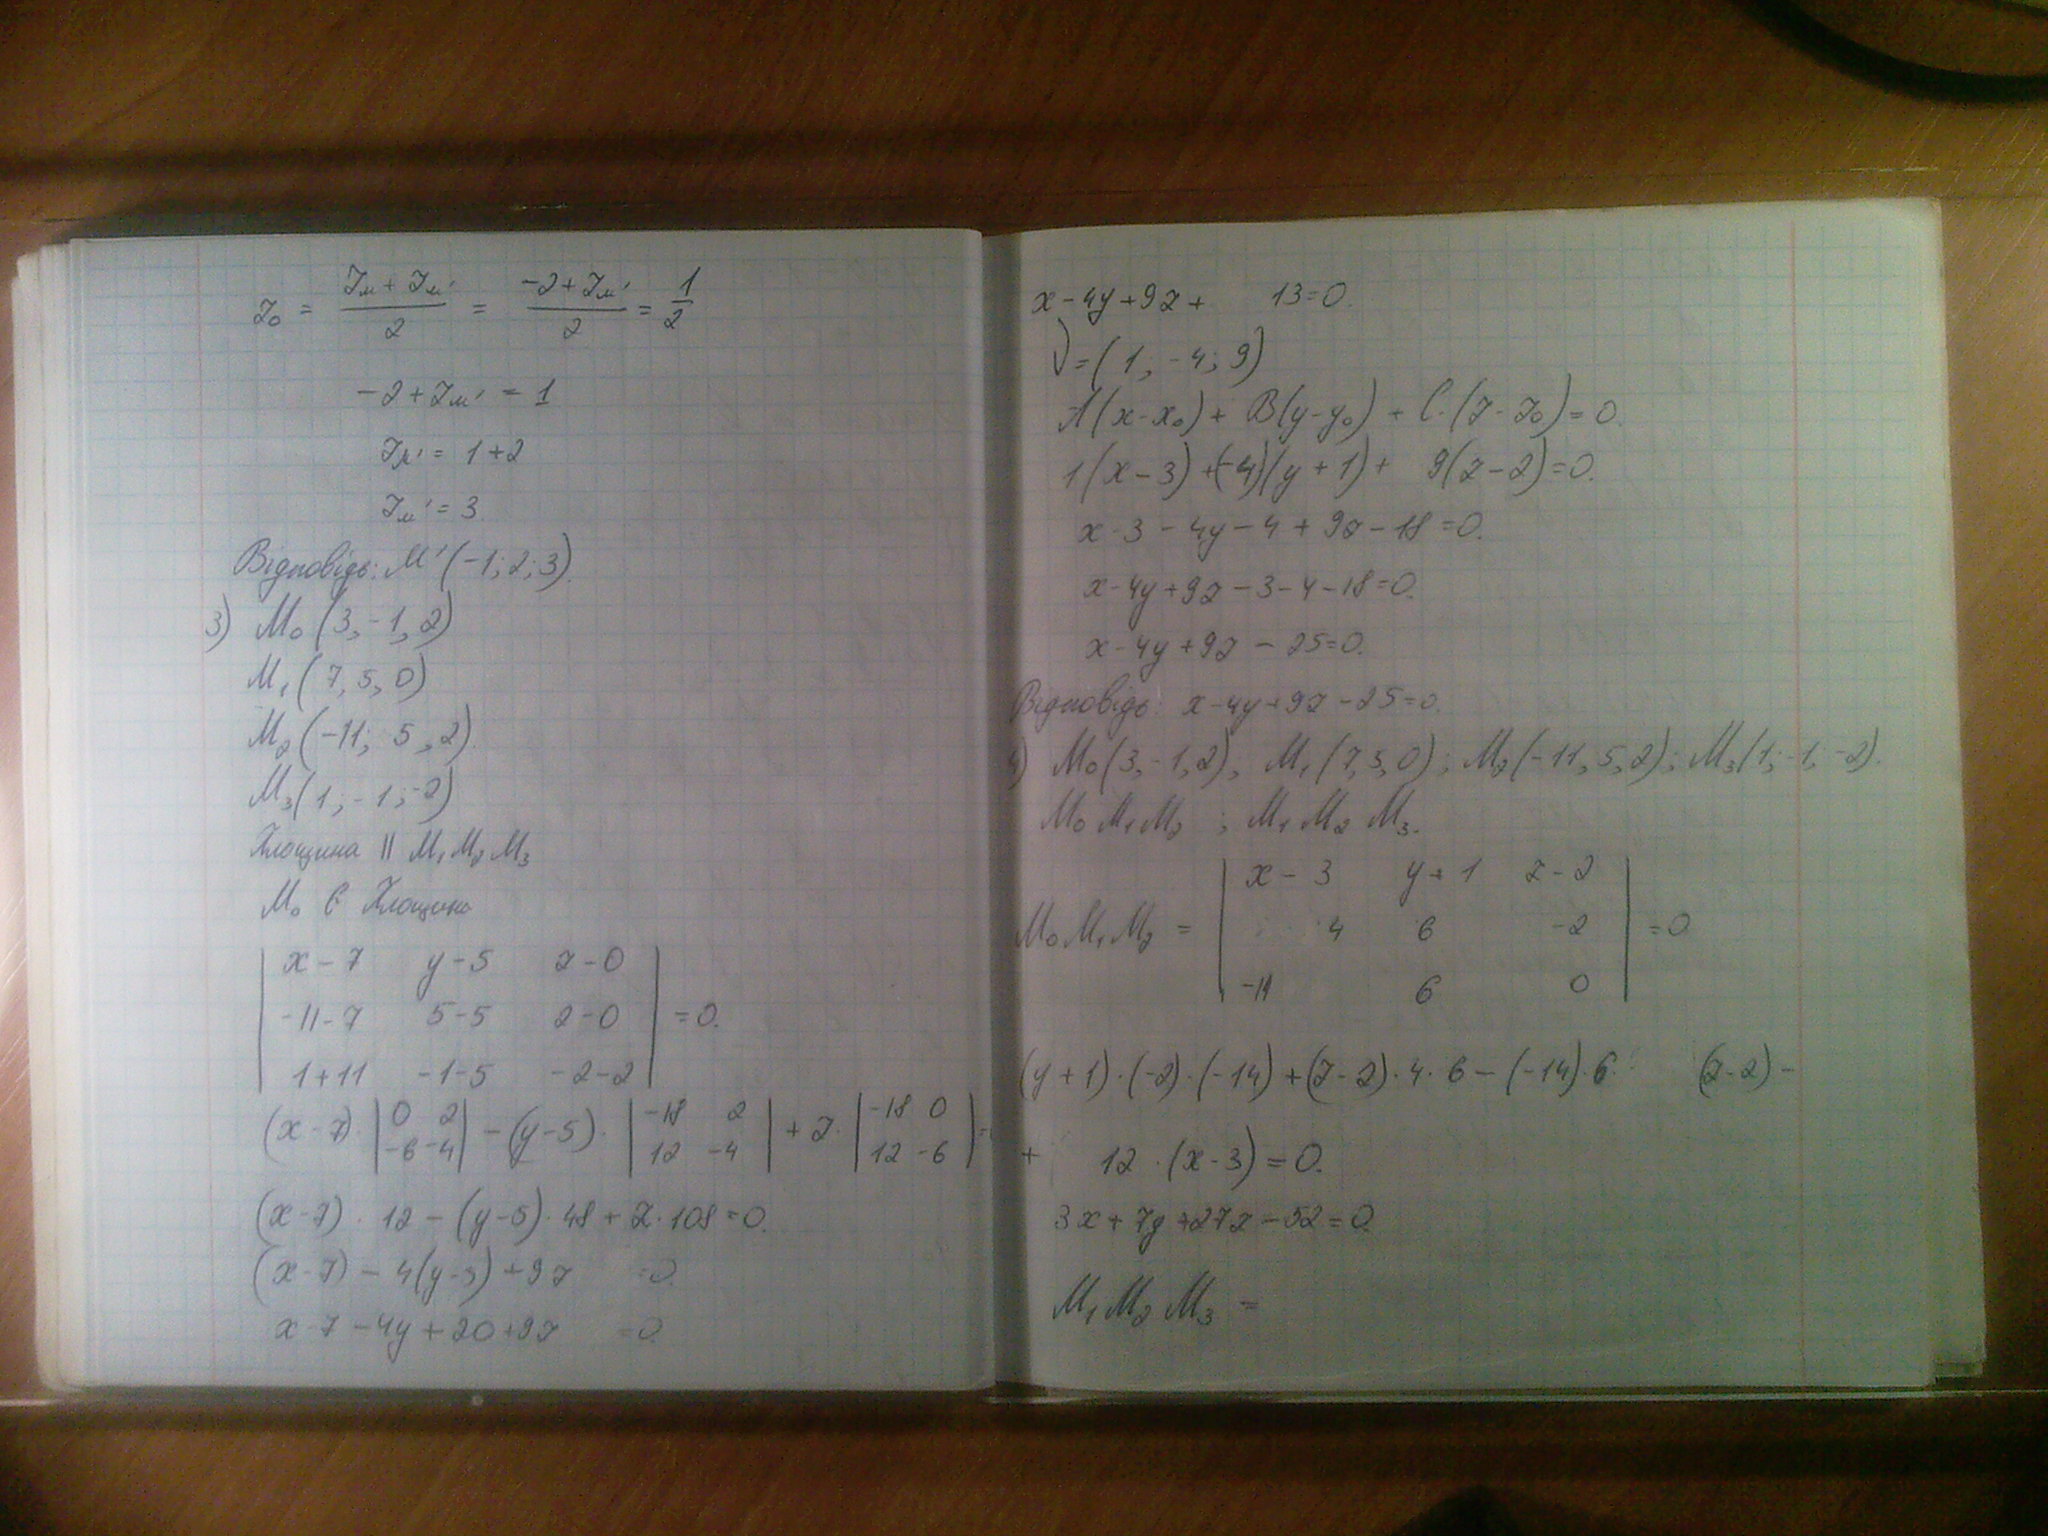 z₀ = (z_м + z_м')/2 = (-2 + z_м')/2 = 1/2
-2 + z_м' = 1
z_м' = 1+2
z_м' = 3.
Відповідь: M'(-1; 2; 3).
3) M₀ (3, -1, 2)
M₁ (7, 5, 0)
M₂ (-11; 5, 2)
M₃ (1; -1; -2)
Площина || M₁ M₂ M₃
M₀ ∈ Площина
| x-7 y-5 z-0 |
| -11-7 5-5 2-0 | = 0.
| 1+11 -1-5 -2-2 |
(x-7)·|0 2; -6 -4| - (y-5)·|-18 2; 12 -4| + z·|-18 0; 12 -6| =
(x-7)·12 - (y-5)·48 + z·108 = 0.
(x-7) - 4(y-5) + 9z = 0.
x-7-4y+20+9z = 0.
x-4y+9z+ 13=0.
= (1; -4; 9)
A(x-x₀) + B(y-y₀) + C·(z-z₀) = 0.
1(x-3) + (-4)(y+1) + 9(z-2) = 0.
x-3-4y-4+9z-18=0.
x-4y+9z-3-4-18=0.
x-4y+9z-25=0.
Відповідь: x-4y+9z-25=0.
4) M₀(3,-1,2), M₁(7,5,0); M₂(-11,5,2); M₃(1;-1;-2).
M₀M₁M₂ ; M₁M₂M₃.
| x-3 y+1 z-2 |
M₀M₁M₂ = | 4 6 -2 | = 0
| -14 6 0 |
(y+1)·(-2)·(-14)+(z-2)·4·6-(-14)·6· (z-2) -
+ 12·(x-3)=0.
3x+7y+27z-52=0.
M₁M₂M₃ =